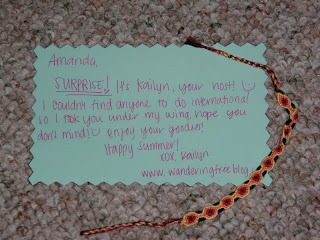 Amanda,
SURPRISE! It's Kailyn, your host!
I couldn't find anyone to do international
so I took you under my wing. hope you
don't mind! enjoy your goodies!
Happy Summer!
xox, Kailyn
www.wanderingtree.blog